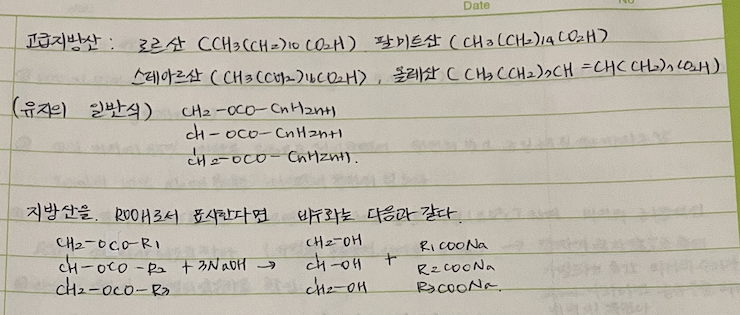 Date
No
고급지방산 : 로르산 (CH3(CH2)10CO2H) 팔미트산 (CH3(CH2)14CO2H)
스테아르산 (CH3(CH2)16CO2H), 올레산 (CH3(CH2)7CH=CH(CH2)7CO2H)
(유지의 일반식) CH2-OCO-CnH2n+1
CH-OCO-CnH2n+1
CH2-OCO-CnH2n+1.
지방산을. ROOH로서 표시한다면 비누화는 다음과 같다.
CH2-OCO-R1 CH2-OH R1COONa
CH-OCO-R2 + 3NaOH → CH-OH + R2COONa
CH2-OCO-R3 CH2-OH R3COONa.